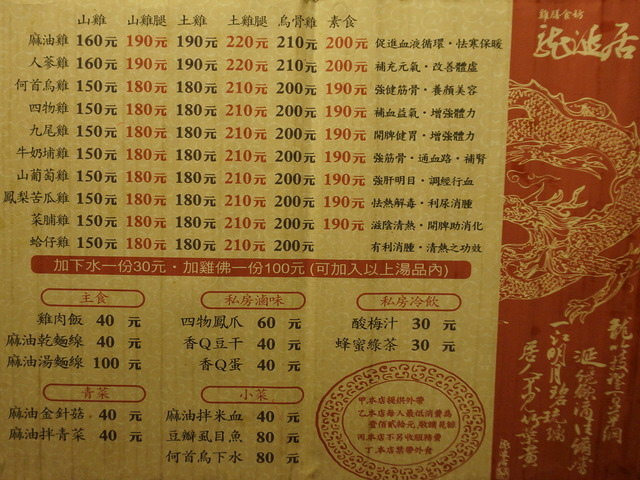 山雞 山雞腿 土雞 土雞腿 烏骨雞 素食
麻油雞 160元 190元 190元 220元 210元 200元 促進血液循環・怯寒保暖
人蔘雞 160元 190元 190元 220元 210元 200元 補充元氣・改善體虛
何首烏雞 150元 180元 180元 210元 200元 190元 強健筋骨・養顏美容
四物雞 150元 180元 180元 210元 200元 190元 補血益氣・增強體力
九尾雞 150元 180元 180元 210元 200元 190元 開脾健胃・增強體力
牛奶埔雞 150元 180元 180元 210元 200元 190元 強筋骨・通血路・補腎
山葡萄雞 150元 180元 180元 210元 200元 190元 強肝明目・調經行血
鳳梨苦瓜雞 150元 180元 180元 210元 200元 190元 怯熱解毒・利尿消腫
菜脯雞 150元 180元 180元 210元 200元 190元 滋陰清熱・開脾助消化
蛤仔雞 150元 180元 180元 210元 200元 有利消腫・清熱之功效
加下水一份30元・加雞佛一份100元(可加入以上湯品內)
主食
雞肉飯 40 元
麻油乾麵線 40 元
麻油湯麵線 100 元
青菜
麻油金針菇 40 元
麻油拌青菜 40 元
私房滷味
四物鳳爪 60 元
香Q豆干 40 元
香Q蛋 40 元
小菜
麻油拌米血 40 元
豆瓣虱目魚 80 元
何首烏下水 80 元
私房冷飲
酸梅汁 30 元
蜂蜜綠茶 30 元
甲.本店提供外帶
乙.本店每人最低消費為
壹佰貳拾元,敬請見諒
丙.本店不另收服務費
丁.本店禁帶外食
雞膳食坊
龍涎居